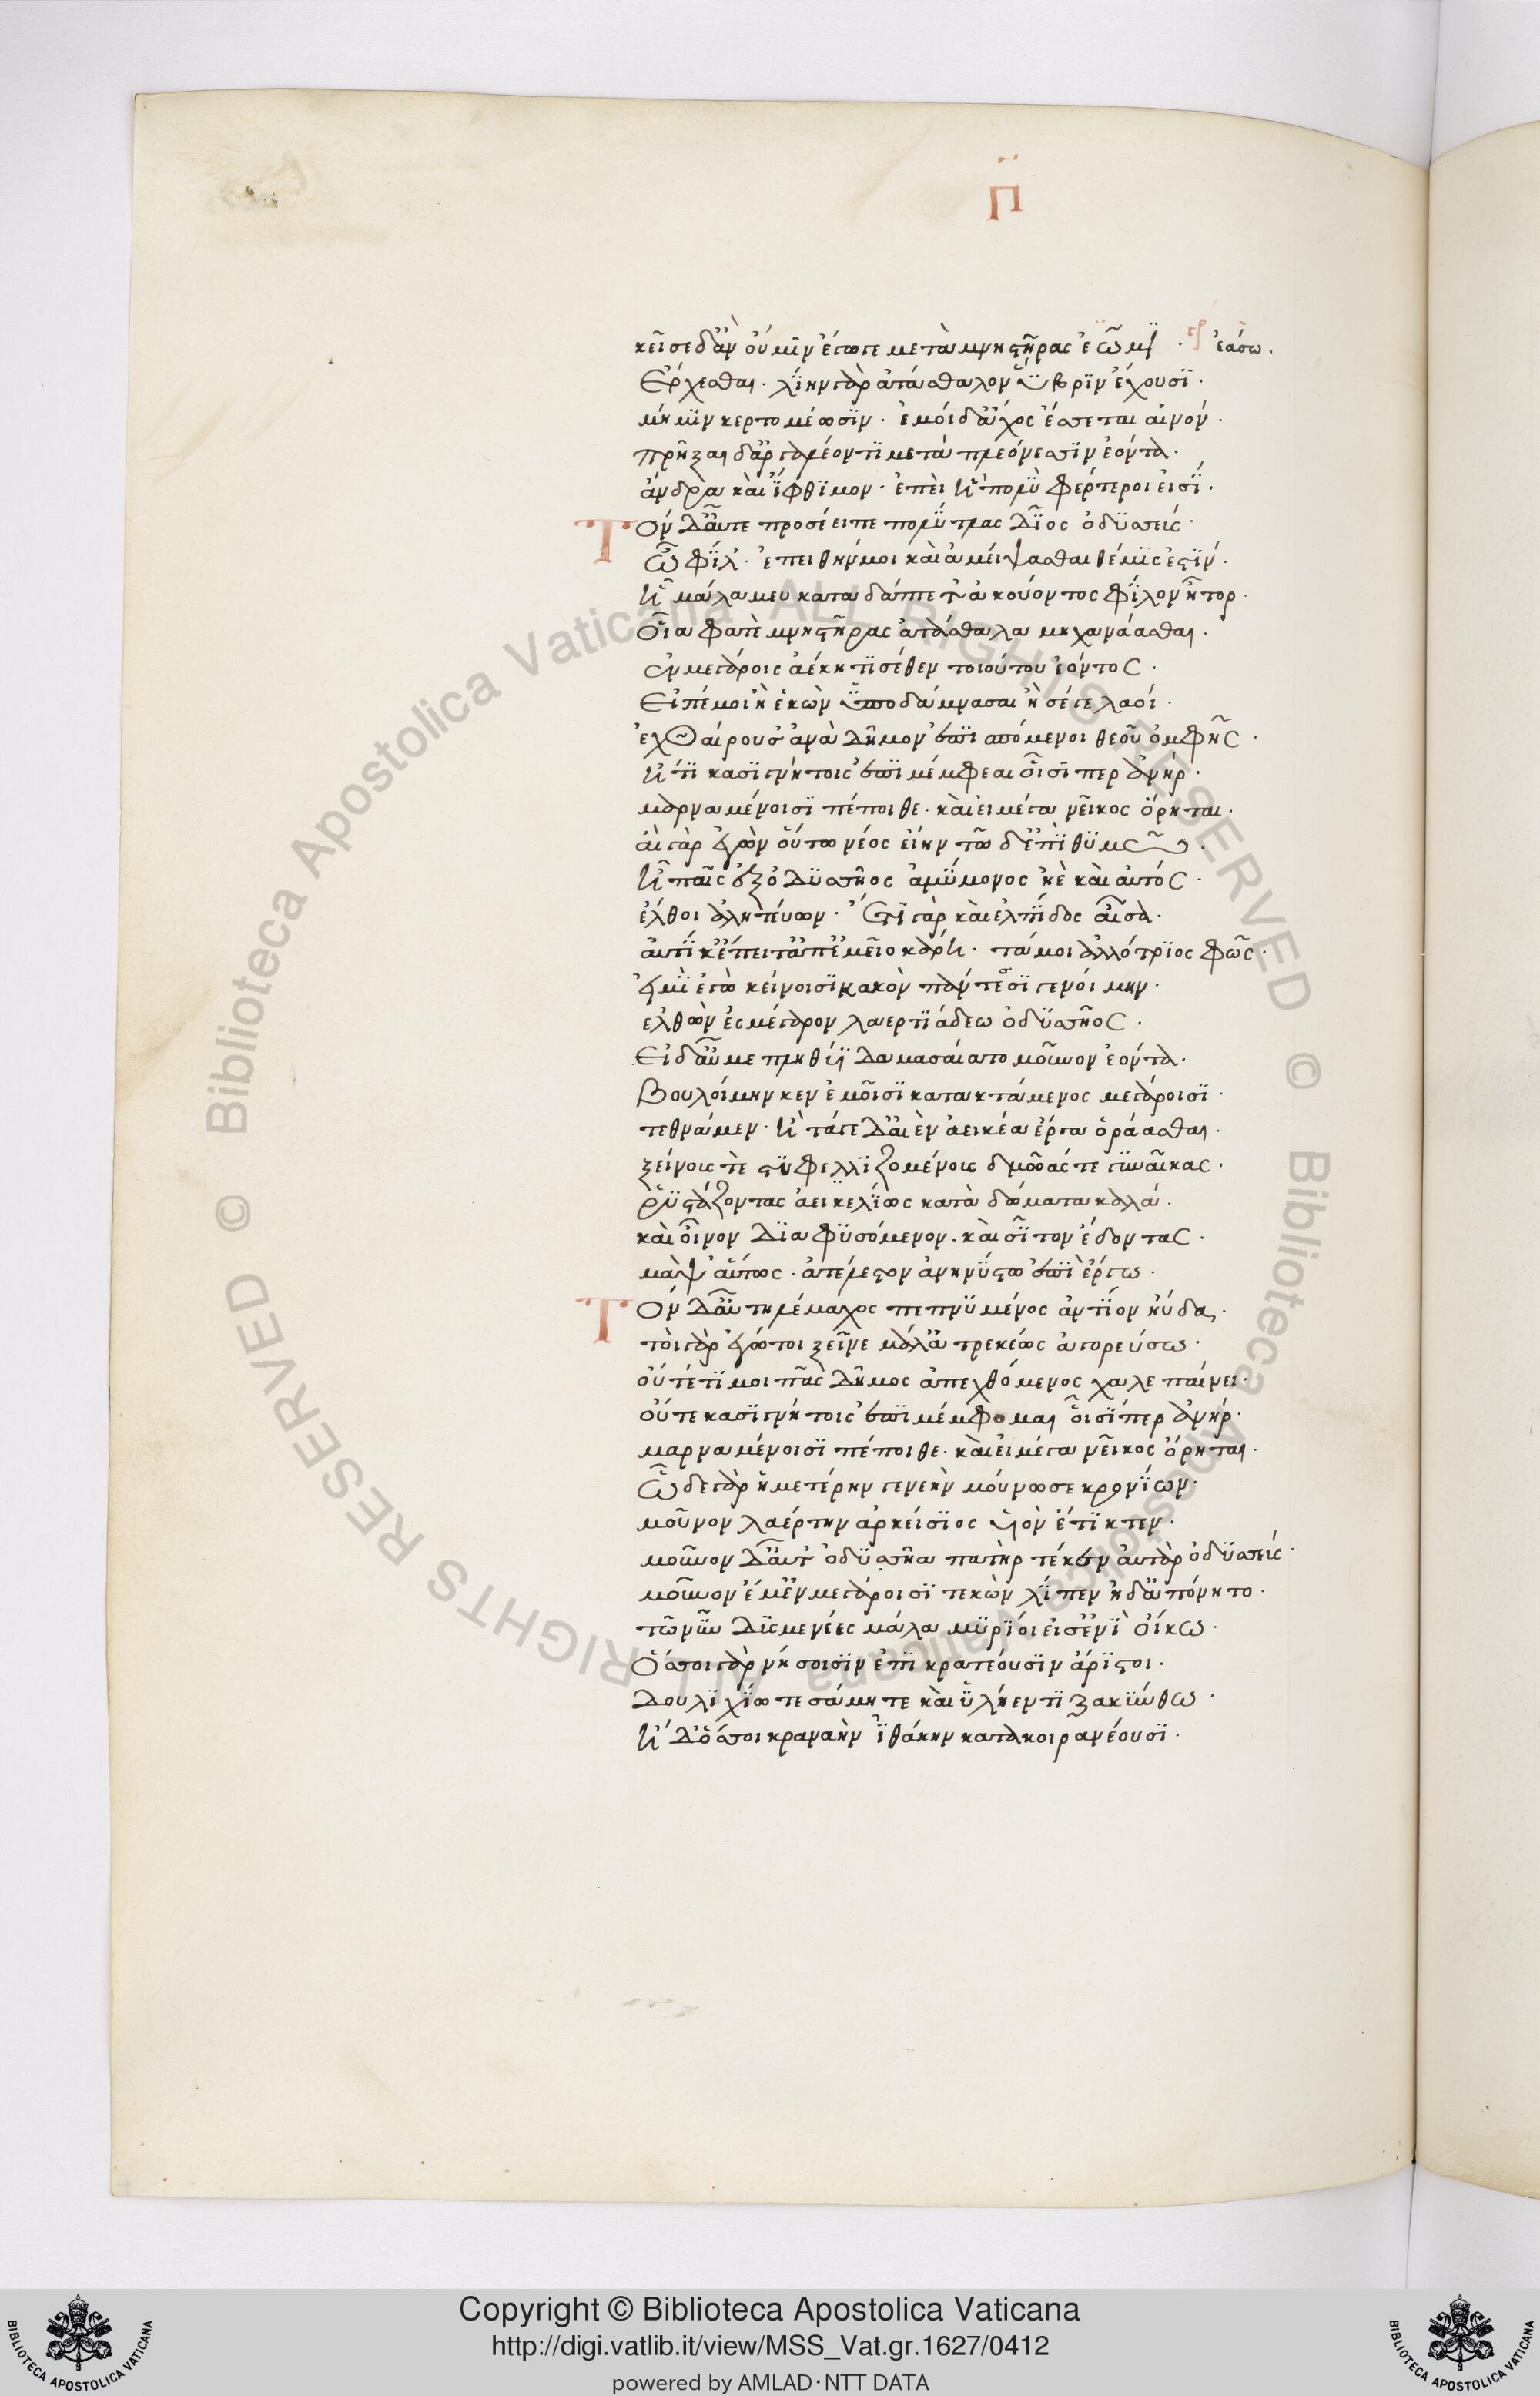 Π
κεῖσε δ' ἂν οὔ μϊν ἔγωγε μετὰ μνηστῆρας ἐῷμϊ · γρ ἐάσω.
Ἔρχεσθαι. λΐην γὰρ ἀτάσθαλον ὕβρϊν ἔχουσϊ ·
μή μϊν κερτομέωσϊν · ἐμοὶ δ' ἄχος ἔσσεται αἰνόν ·
πρῆξαι δ' ἀργαλέον τϊ μετὰ πλεόνεσσϊν ἐόντα ·
ἄνδρα καὶ ἴφθϊμον · ἐπεὶ ἦ πολὺ φέρτεροι εἰσΐ ·
Τὸν δ' αὖτε προσέειπε πολύτλας δῖος ὀδϋσσεύς ·
Ὦ φΐλ' · ἐπεὶ θήν μοι καὶ ἀμείψασθαι θέμϊς ἐστΐν ·
ἦ μάλα μευ καταδάπτετ' ἀκούοντος φΐλον ἦτορ ·
Οἷα φατὲ μνηστῆρας ἀτάσθαλα μηχανάασθαι ·
ἐν μεγάροις ἀέκητϊ σέθεν τοιούτου ἐόντος ·
Εἰπέ μοι ἢ ἑκὼν ὑποδάμνασαι ἦ σέγε λαοί ·
ἐχθαίρουσ' ἀνὰ δῆμον ἐπισπόμενοι θεοῦ ὀμφῆς ·
ἦ τϊ κασϊγνήτοις ἐπιμέμφεαι οἷσϊ περ ἀνήρ ·
μαρναμένοισϊ πέποιθε · καὶ εἰ μέγα νεῖκος ὄρηται ·
αἲ γὰρ ἐγὼν οὕτω νέος εἴην τῶδ' ἐπὶ θϋμῷ ·
ἢ παῖς ἐξ ὀδϋσσῆος ἀμύμονος ἠὲ καὶ αὐτός ·
ἔλθοι ἀλητεύων · ἔτϊ γὰρ καὶ ἐλπΐδος αἶσα ·
αὐτΐκ' ἔπειτ' ἀπ' ἐμεῖο κάρη · τάμοι ἀλλότρϊος φῶς ·
εἰ μὴ ἐγὼ κείνοισϊ κακὸν πάντεσϊ γενοίμην ·
ελθὼν ἐς μέγαρον λαερτϊάδεω ὀδϋσσῆος ·
Εἰ δ' αὖ με πληθύϊ δαμασαίατο μοῦνον ἐόντα ·
Βουλοίμην κεν ἐμοῖσϊ κατακτάμενος μεγάροισϊ ·
τεθνάμεν · ἢ τάγε δ' αἰὲν ἀεικέα ἔργα ὁράασθαι ·
ξείνους τὲ στϋφελλϊζομένους δμωάς τε γϋναῖκας ·
ῥϋστάζοντας ἀεικελΐως κατὰ δώματα καλά ·
καὶ οἶνον δϊαφϋσόμενον. καὶ σῖτον ἔδοντας ·
μὰψ αὔτως · ἀτέλεστον ἀνηνύστω ἐπὶ ἔργω ·
Τὸν δ' αὖ τηλέμαχος πεπνϋμένος ἀντΐον ηὔδα ·
τοὶ γὰρ ἐγώ τοι ξεῖνε μάλ' ἀτρεκέως ἀγορεύσω ·
οὔτέ τϊ μοι πᾶς δῆμος ἀπεχθόμενος χαλεπαίνει ·
οὔτε κασϊγνήτοις ἐπιμέμφομαι οἷσϊ περ ἀνήρ ·
μαρναμένοισϊ πέποιθε · καὶ εἰ μέγα νεῖκος ὄρηται ·
Ὧδε γὰρ ἡμετέρην γενεὴν μούνωσε κρονΐων ·
μοῦνον λαέρτην ἀρκείσϊος υἱὸν ἔτϊκτεν ·
μοῦνον δ' αὖτ' ὀδϋσσῆα πατὴρ τέκεν αὐτὰρ ὀδϋσσεύς ·
μοῦνον ἔμ' ἐν μεγάροισϊ τεκὼν λΐπεν ἠδ' ἀπόνητο ·
τῶ νῦν δϋσμενέες μάλα μϋρΐοι εἰσ' ἐνὶ οἴκω ·
Ὅσσοι γὰρ νήσοισϊν ἐπϊκρατέουσϊν ἄρϊστοι ·
Δουλϊχΐω τε σάμη τε καὶ ὑλήεντϊ ζακϋνθω ·
ἠδ' ὅσσοι κραναὴν ἰθάκην κατακοιρανέουσϊ ·
Copyright © Biblioteca Apostolica Vaticana
http://digi.vatlib.it/view/MSS_Vat.gr.1627/0412
powered by AMLAD·NTT DATA